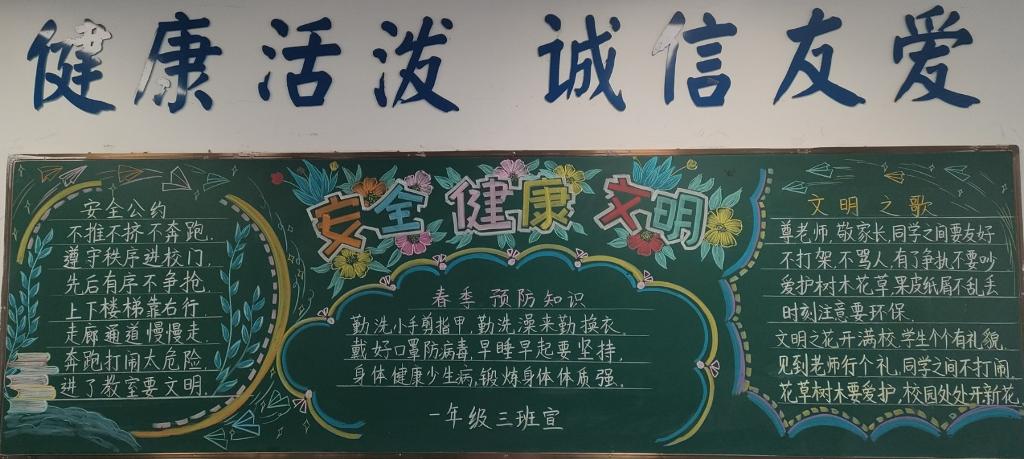 健康活泼 诚信友爱
安全健康文明
安全公约
不推不挤不奔跑.
遵守秩序进校门.
先后有序不争抢.
上下楼梯靠右行.
走廊通道慢慢走.
奔跑打闹太危险
进了教室要文明.
春季预防知识
勤洗小手剪指甲,勤洗澡来勤换衣.
戴好口罩防病毒,早睡早起要坚持,
身体健康少生病,锻炼身体体质强.
一年级三班宣
文明之歌
尊老师,敬家长,同学之间要友好
不打架,不骂人,有了争执不要吵
爱护树木花草,果皮纸屑不乱丢
时刻注意要环保.
文明之花开满校,学生个个有礼貌.
见到老师行个礼,同学之间不打闹
花草树木要爱护,校园处处开新花.